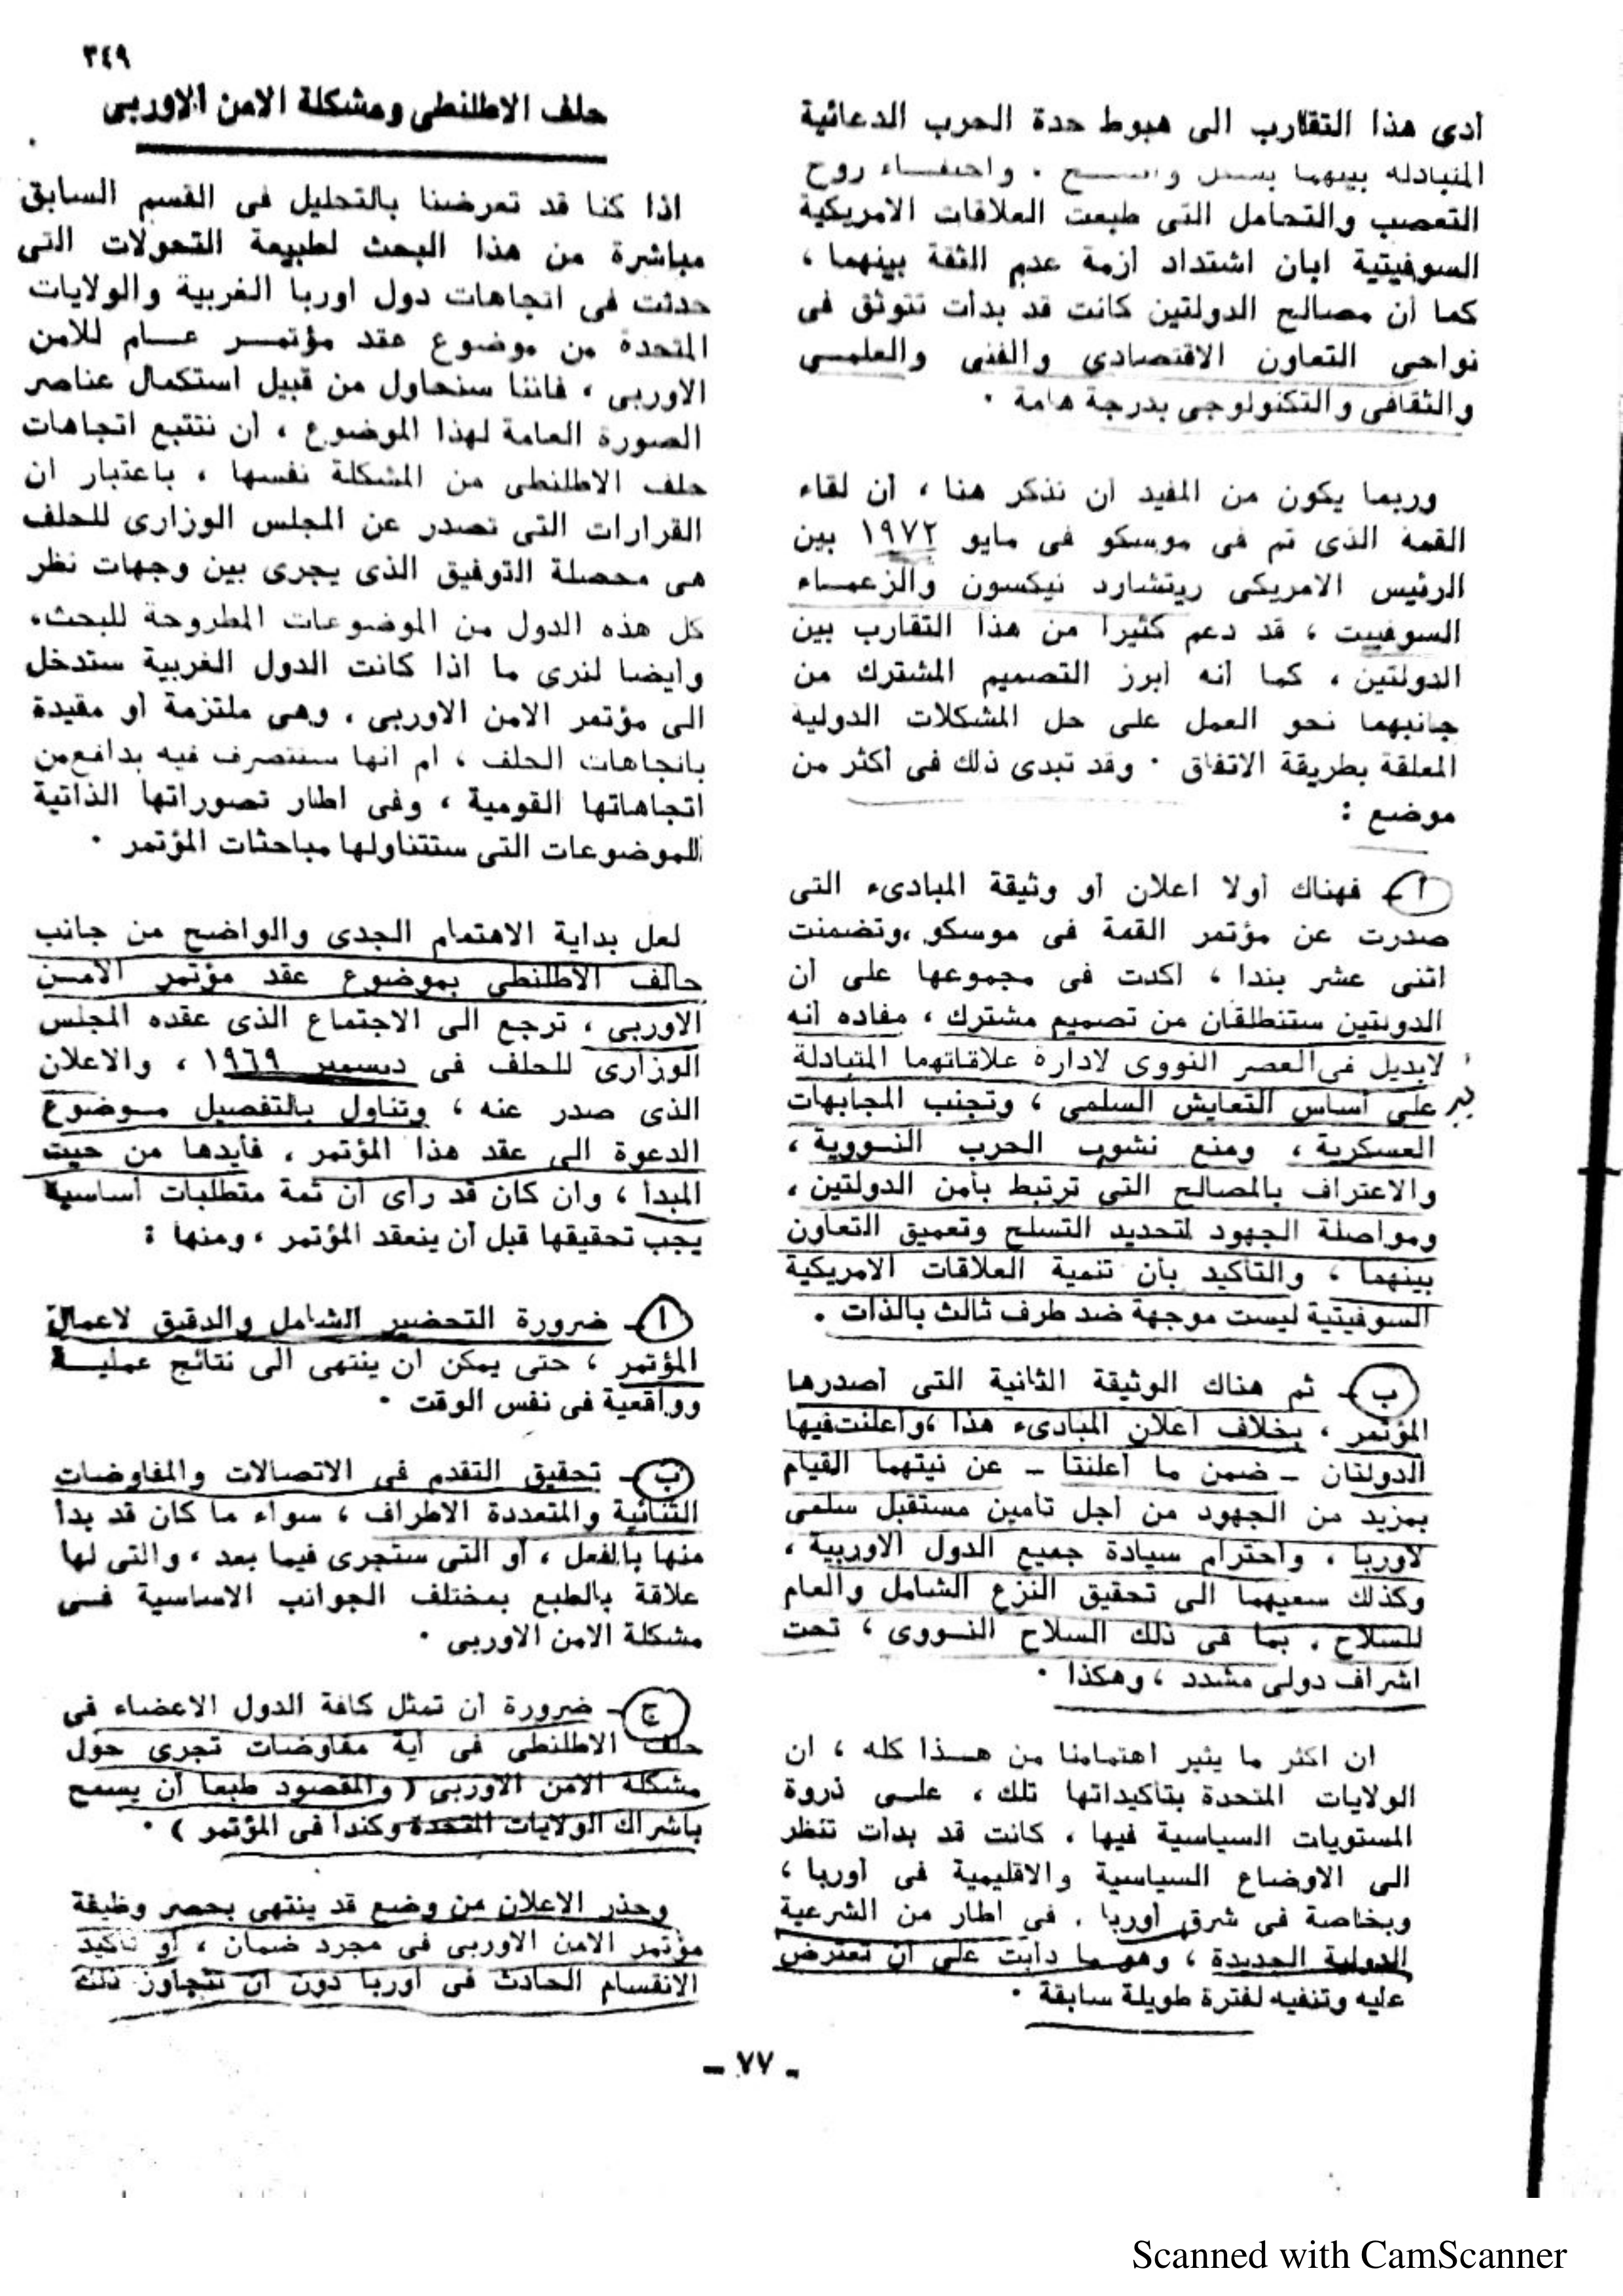 ٣٤٩
أدى هذا التقارب الى هبوط حدة الحرب الدعائية
المتبادلة بينهما بشكل واسع ٠ واختفاء روح
التعصب والتحامل التى طبعت العلاقات الامريكية
السوفيتية ابان اشتداد أزمة عدم الثقة بينهما ،
كما أن مصالح الدولتين كانت قد بدأت تتوثق فى
نواحى التعاون الاقتصادى والفنى والعلمى
والثقافى والتكنولوجى بدرجة هامة ٠
وربما يكون من المفيد أن نذكر هنا ، أن لقاء
القمة الذى تم فى موسكو فى مايو ١٩٧٢ بين
الرئيس الامريكى ريتشارد نيكسون والزعماء
السوفييت ، قد دعم كثيرا من هذا التقارب بين
الدولتين ، كما أنه أبرز التصميم المشترك من
جانبهما نحو العمل على حل المشكلات الدولية
المعلقة بطريقة الاتفاق ٠ وقد تبدى ذلك فى أكثر من
موضع :
أ - فهناك أولا اعلان أو وثيقة المبادىء التى
صدرت عن مؤتمر القمة فى موسكو ،وتضمنت
اثنى عشر بندا ، أكدت فى مجموعها على أن
الدولتين ستنطلقان من تصميم مشترك ، مفاده أنه
لابديل فى العصر النووى لادارة علاقاتهما المتبادلة
على أساس التعايش السلمى ، وتجنب المجابهات
العسكرية ، ومنع نشوب الحرب النووية ،
والاعتراف بالمصالح التى ترتبط بأمن الدولتين ،
ومواصلة الجهود لتحديد التسلح وتعميق التعاون
بينهما ، والتأكيد بأن تنمية العلاقات الامريكية
السوفيتية ليست موجهة ضد طرف ثالث بالذات ٠
ب - ثم هناك الوثيقة الثانية التى أصدرها
المؤتمر ، بخلاف اعلان المبادىء هذا ،وأعلنت فيها
الدولتان - ضمن ما أعلنتا - عن نيتهما القيام
بمزيد من الجهود من أجل تأمين مستقبل سلمى
لاوربا ، واحترام سيادة جميع الدول الاوربية ،
وكذلك سعيهما الى تحقيق النزع الشامل والعام
للسلاح ، بما فى ذلك السلاح النووى ، تحت
اشراف دولى مشدد ، وهكذا ٠
ان أكثر ما يثير اهتمامنا من هذا كله ، ان
الولايات المتحدة بتأكيداتها تلك ، على ذروة
المستويات السياسية فيها ، كانت قد بدأت تنظر
الى الاوضاع السياسية والاقليمية فى أوربا ،
وبخاصة فى شرق أوربا ، فى اطار من الشرعية
الدولية الجديدة ، وهو ما دأبت على أن تعترض
عليه وتنفيه لفترة طويلة سابقة ٠
حلف الاطلنطى ومشكلة الامن الاوربى
اذا كنا قد تعرضنا بالتحليل فى القسم السابق
مباشرة من هذا البحث لطبيعة التحولات التى
حدثت فى اتجاهات دول أوربا الغربية والولايات
المتحدة من موضوع عقد مؤتمر عام للامن
الاوربى ، فاننا سنحاول من قبيل استكمال عناصر
الصورة العامة لهذا الموضوع ، أن نتتبع اتجاهات
حلف الاطلنطى من المشكلة نفسها ، باعتبار ان
القرارات التى تصدر عن المجلس الوزارى للحلف
هى محصلة التوفيق الذى يجرى بين وجهات نظر
كل هذه الدول من الموضوعات المطروحة للبحث،
وأيضا لنرى ما اذا كانت الدول الغربية ستدخل
الى مؤتمر الامن الاوربى ، وهى ملتزمة أو مقيدة
باتجاهات الحلف ، أم انها ستتصرف فيه بدافع من
اتجاهاتها القومية ، وفى اطار تصوراتها الذاتية
للموضوعات التى ستتناولها مباحثات المؤتمر ٠
لعل بداية الاهتمام الجدى والواضح من جانب
حالف الاطلنطى بموضوع عقد مؤتمر الامن
الاوربى ، ترجع الى الاجتماع الذى عقده المجلس
الوزارى للحلف فى ديسمبر ١٩٦٩ ، والاعلان
الذى صدر عنه ، وتناول بالتفصيل موضوع
الدعوة الى عقد هذا المؤتمر ، فأيدها من حيث
المبدأ ، وان كان قد رأى أن ثمة متطلبات أساسية
يجب تحقيقها قبل أن ينعقد المؤتمر ، ومنها :
أ - ضرورة التحضير الشامل والدقيق لاعمال
المؤتمر ، حتى يمكن أن ينتهى الى نتائج عملية
وواقعية فى نفس الوقت ٠
ب - تحقيق التقدم فى الاتصالات والمفاوضات
الثنائية والمتعددة الاطراف ، سواء ما كان قد بدأ
منها بالفعل ، أو التى ستجرى فيما بعد ، والتى لها
علاقة بالطبع بمختلف الجوانب الاساسية فى
مشكلة الامن الاوربى ٠
ج - ضرورة أن تمثل كافة الدول الاعضاء فى
حلف الاطلنطى فى أية مفاوضات تجرى حول
مشكلة الامن الاوربى ( والمقصود طبعا أن يسمح
باشراك الولايات المتحدة وكندا فى المؤتمر ) ٠
وحذر الاعلان من وضع قد ينتهى بحصر وظيفة
مؤتمر الامن الاوربى فى مجرد ضمان ، أو تأكيد
الانقسام الحادث فى أوربا دون أن تتجاوز ذلك
- ٧٧ -
Scanned with CamScanner